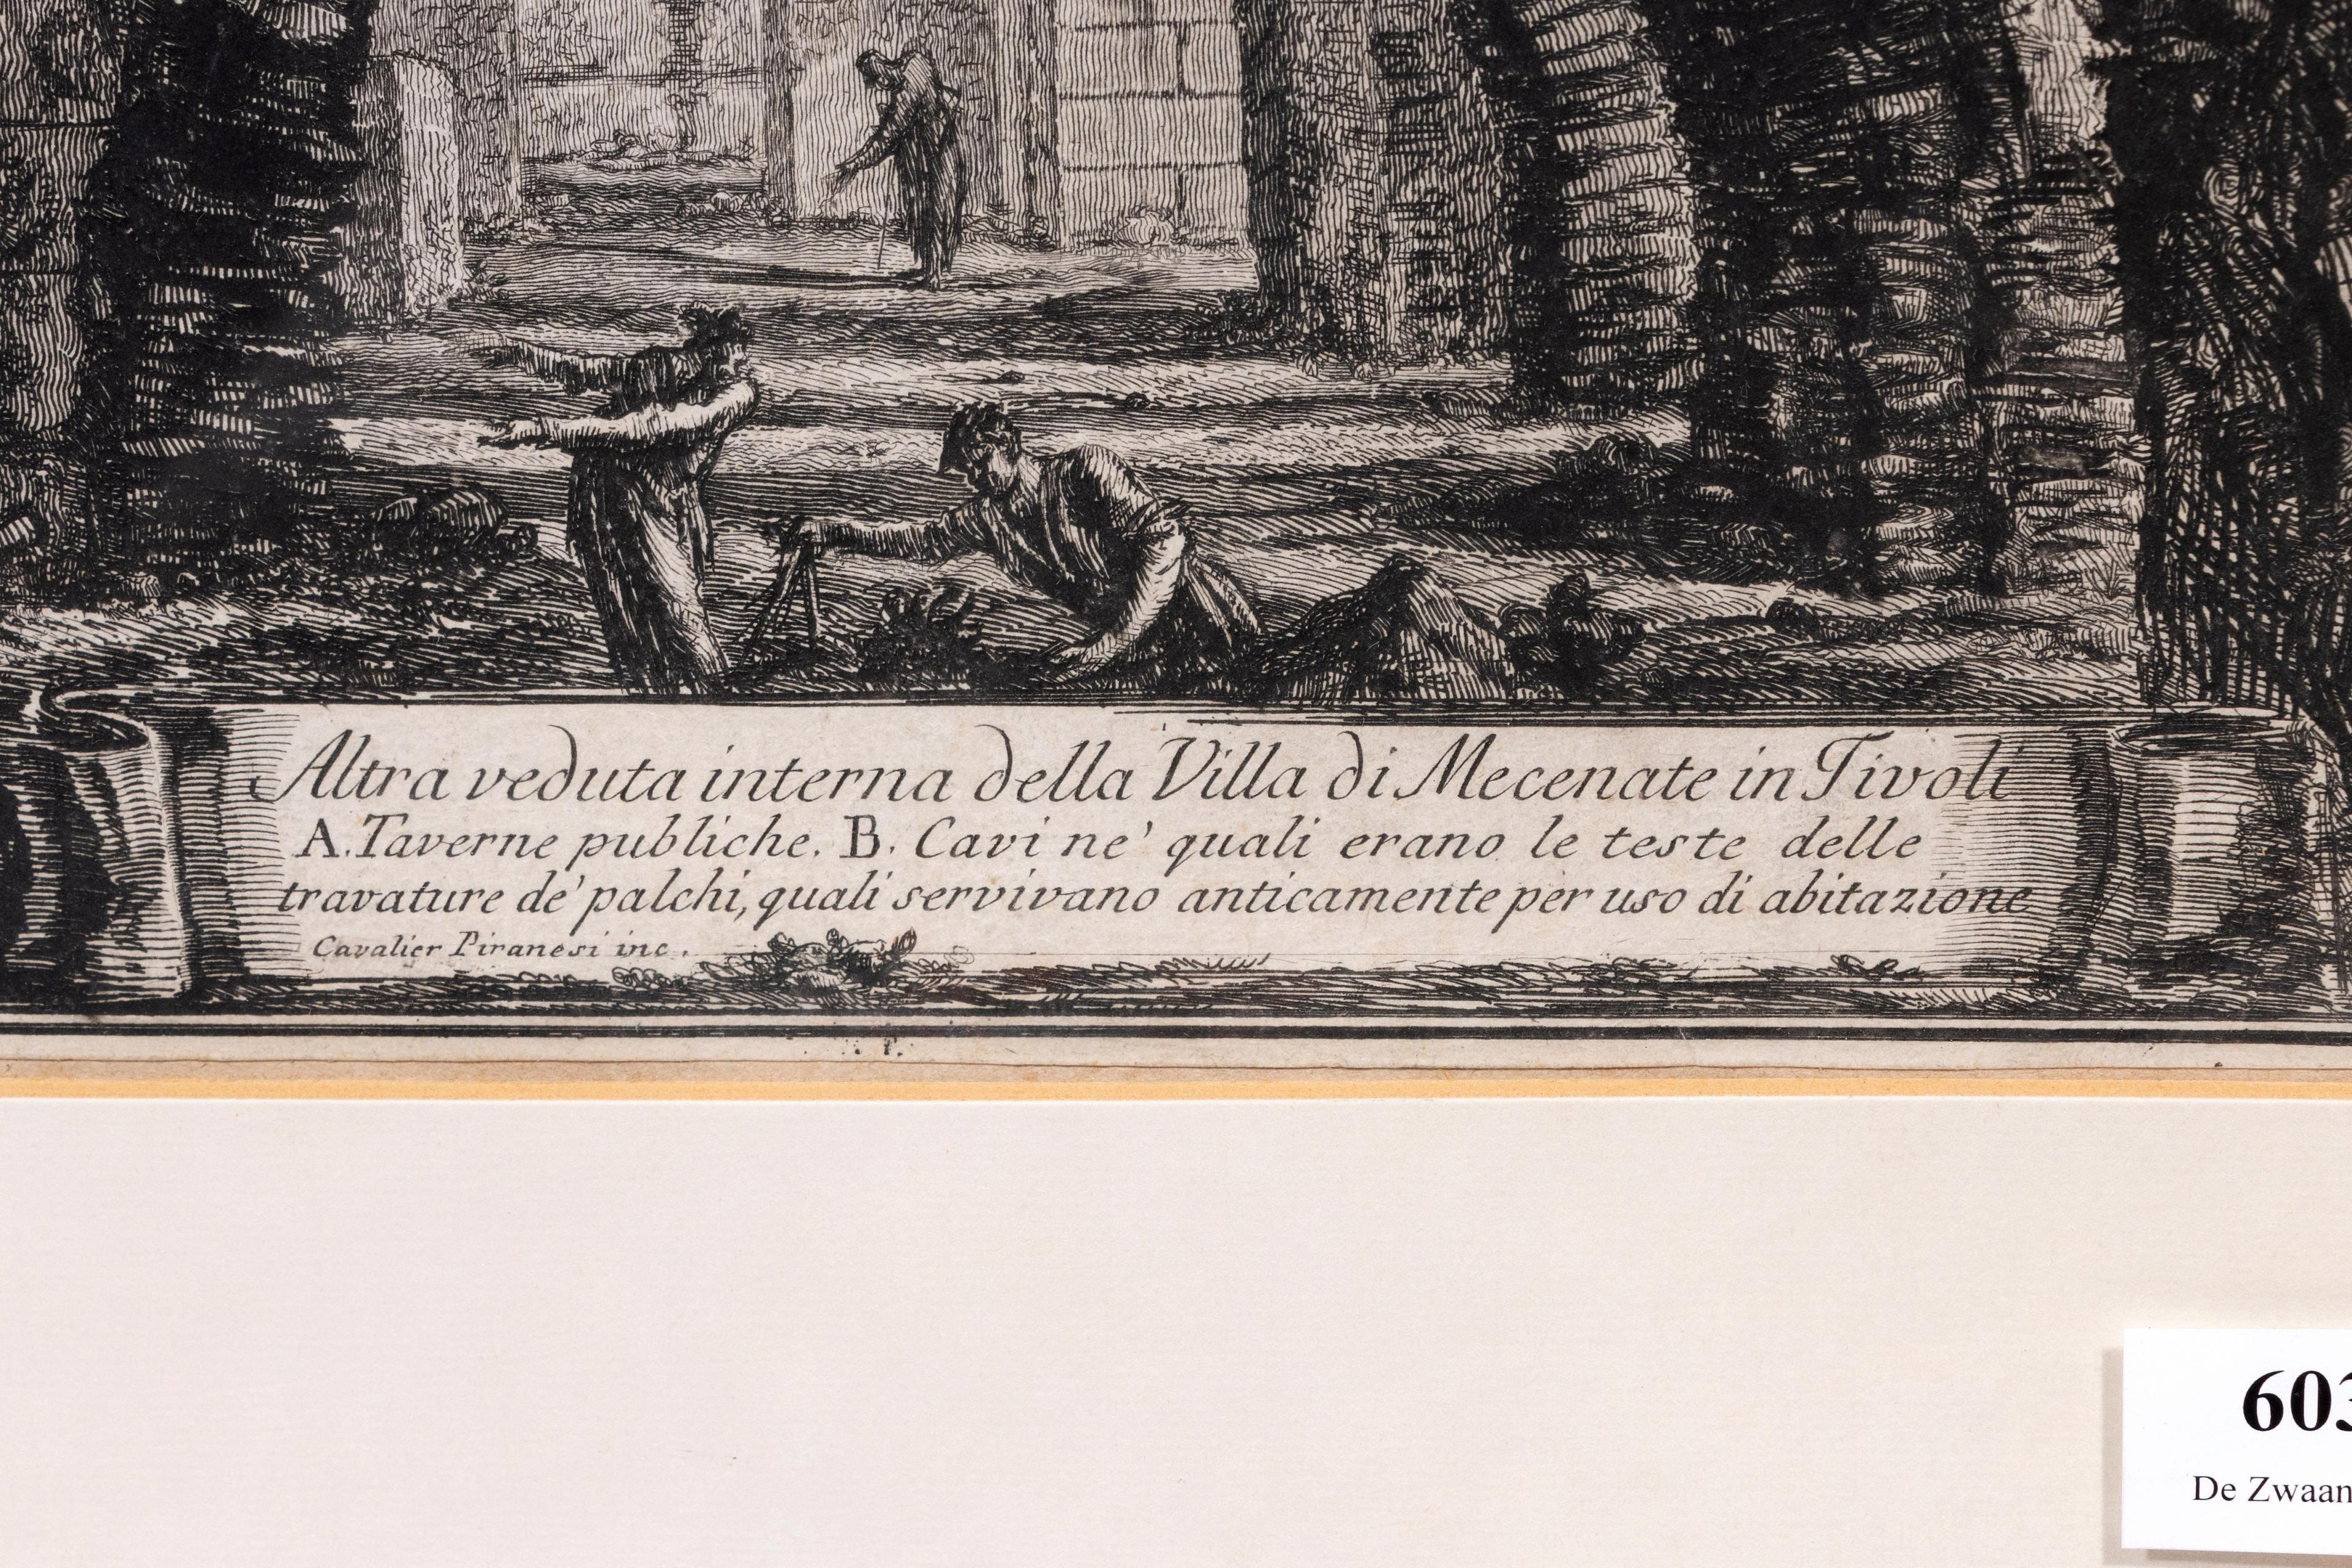 Altra veduta interna della Villa di Mecenate in Tivoli
A. Taverne publiche. B. Cavi ne' quali erano le teste delle
travature de' palchi, quali servivano anticamente per uso di abitazione
Cavalier Piranesi inc.
603
De Zwaan